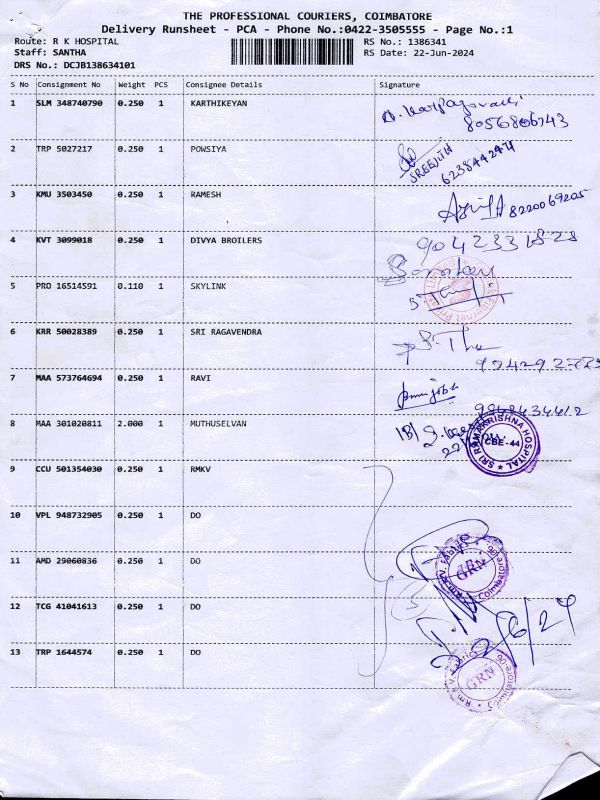 THE PROFESSIONAL COURIERS, COIMBATORE
Delivery Runsheet - PCA - Phone No.:0422-3505555 - Page No.:1
Route: R K HOSPITAL RS No.: 1386341
Staff: SANTHA RS Date: 22-Jun-2024
DRS No.: DCJB138634101
S No Consignment No Weight PCS Consignee Details Signature
1 SLM 348740790 0.250 1 KARTHIKEYAN
8056806743
2 TRP 5027217 0.250 1 POWSIYA
SREEJITH
6238442471
3 KMU 3503450 0.250 1 RAMESH
8220069205
4 KVT 3099018 0.250 1 DIVYA BROILERS
5 PRO 16514591 0.110 1 SKYLINK
6 KRR 50028389 0.250 1 SRI RAGAVENDRA
7 MAA 573764694 0.250 1 RAVI
8 MAA 301020811 2.000 1 MUTHUSELVAN
SRI RAMAKRISHNA HOSPITAL
CBE-44
9 CCU 501354030 0.250 1 RMKV
10 VPL 948732905 0.250 1 DO
11 AMD 29060836 0.250 1 DO
GRN
12 TCG 41041613 0.250 1 DO
22/6/24
13 TRP 1644574 0.250 1 DO
GRN